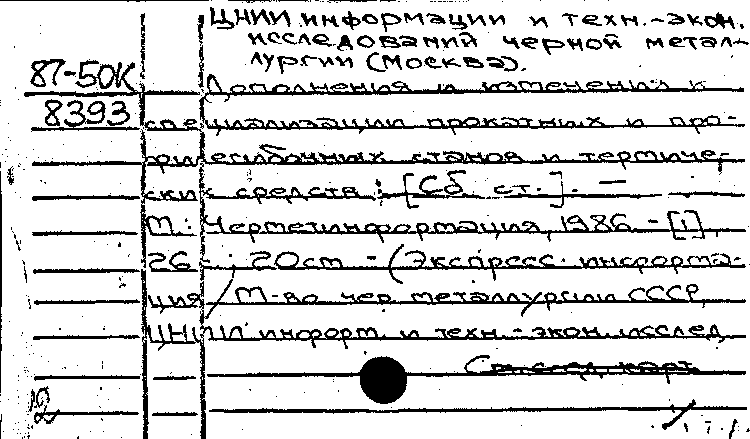 ЦНИИ информации и техн.-экон.
исследований черной метал-
лургии (Москва).
87-50К
Дополнения и изменения к
8393
специализации прокатных и про-
филегибочных станов и
ских средств : [Сб. ст.]. —
М.: Черметинформация, 1986 - [1],
26 с.; 20 см - (Экспресс-информа-
ция / М-во чер. металлургии СССР,
ЦНИИ информ. и техн.-экон. исслед.
См. след. карт.
2